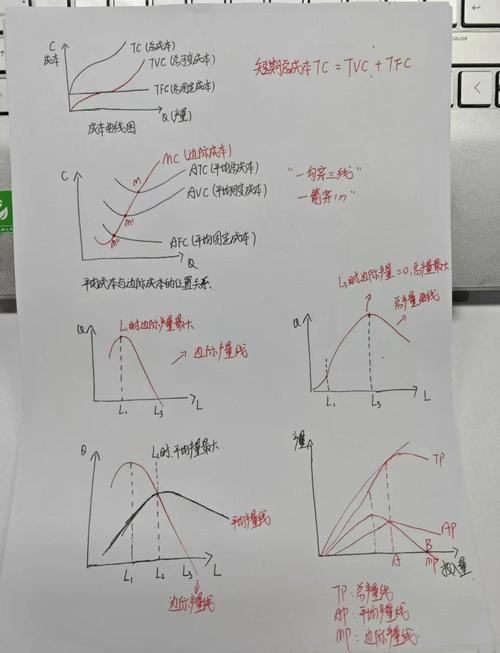 C
成本
TC (总成本)
TVC (总可变成本)
TFC (总固定成本)
Q (产量)
成本曲线图
短期总成本 TC = TVC + TFC
C
MC (边际成本)
ATC (平均总成本)
AVC (平均可变成本)
AFC (平均固定成本)
M
M'
M''
Q
"一勾穿三线"
平均成本与边际成本的位置关系.
Q
L₁时边际产量最大
边际产量线
L₁
L₃
L
L₃时边际产量=0,总产量最大
总产量曲线
Q
L₁
L₃
L
Q
L₂时.平均产量最大
平均产量线
L₁
L₂
L₃
L
边际产量线
产量
TP
AP
A
B
MP
投入量
TP:总产量线
AP:平均产量线
MP:边际产量线.